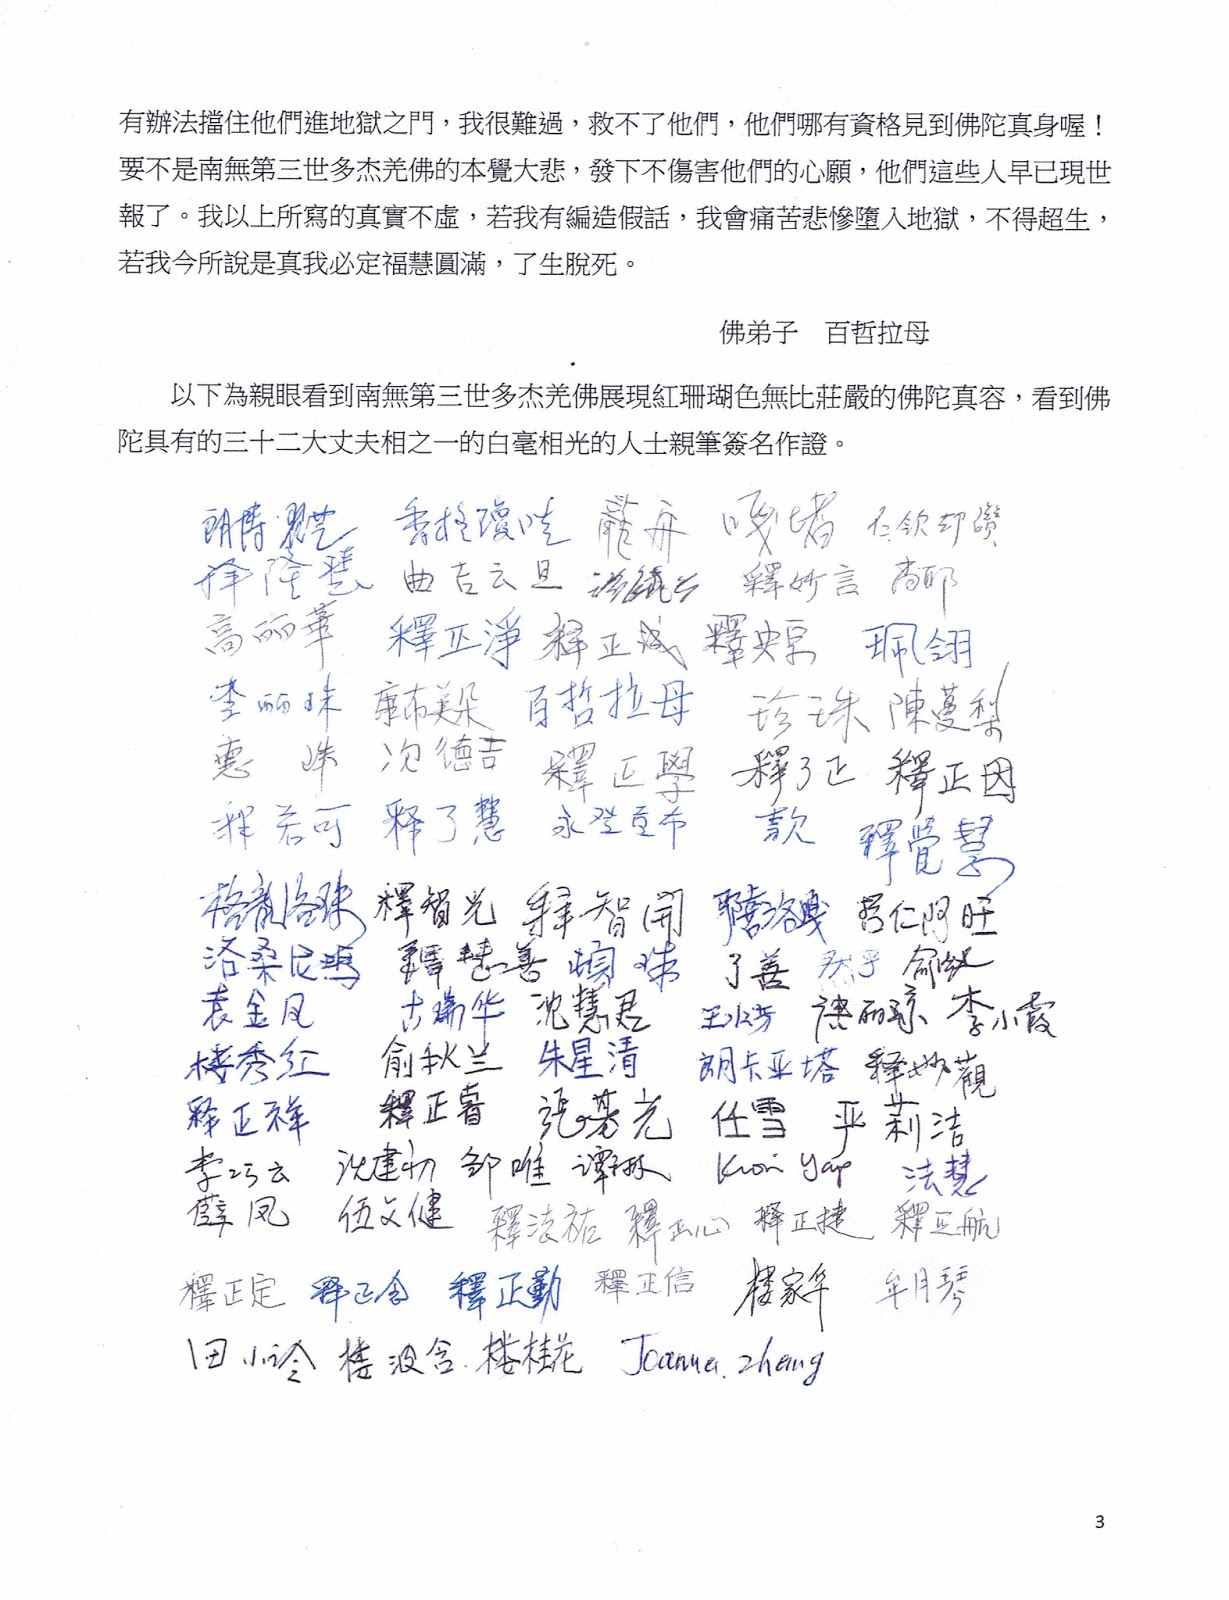 有辦法擋住他們進地獄之門，我很難過，救不了他們，他們哪有資格見到佛陀真身喔！
要不是南無第三世多杰羌佛的本覺大悲，發下不傷害他們的心願，他們這些人早已現世
報了。我以上所寫的真實不虛，若我有編造假話，我會痛苦悲慘墮入地獄，不得超生，
若我今所說是真我必定福慧圓滿，了生脫死。
佛弟子　百哲拉母
以下為親眼看到南無第三世多杰羌佛展現紅珊瑚色無比莊嚴的佛陀真容，看到佛
陀具有的三十二大丈夫相之一的白毫相光的人士親筆簽名作證。
香格瓊哇 龍舟 嘎堵 仁欽却讚
释隆慧 曲吉云旦 釋妙言
高丽華 釋正淨 释正诚 珮翎
李丽珠 百哲拉母 珍珠 陳蔓梨
惠珠 次德吉 釋正學 釋了正 釋正因
释若可 释了慧 釋覺慧
格龍洛珠 釋智光 释智開 哲仁阿旺
洛桑尼瑪 釋慧善 了善
袁金凤 古瑞华 沈慧君 唐丽琼 李小霞
楼秀红 俞秋兰 朱星清 朗卡亚塔 释妙觀
释正祥 釋正睿 任雪 严莉洁
李巧云 沈建初 邹唯 谭琳 法慧
薛凤 伍文健 釋法祐 釋正心 释正捷 釋正航
釋正定 释正念 釋正勤 釋正信 楼家华 牟月琴
田小玲 楼波含 楼桂花 Joanna. Zheng
3